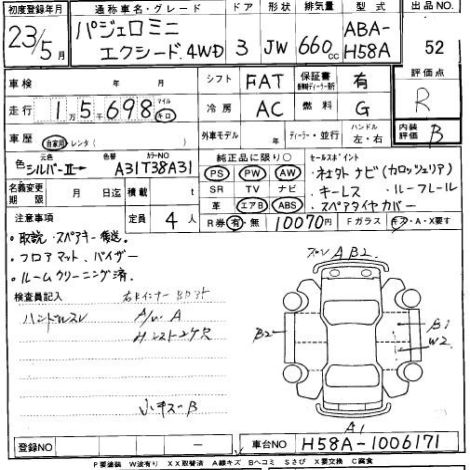 初度登録年月 通称車名・グレード ドア 形状 排気量 型式 出品NO
23年5月 パジェロミニ エクシード.4WD 3 JW 660cc ABA-H58A 52
車検 年 月 シフト FAT 保証書 有 評価点
走行 1万5千698 マイル キロ 冷房 AC 燃料 G R
車歴 自家用 レンタ( ) 外車モデル 年 ディーラー・並行 ハンドル 左・右 内装評価 B
色 元色 シルバーII→ 色替 カラーNO A31T38A31 純正品に限り○ セールスポイント
PS PW AW ・社外ナビ(カロッツェリア)
名義変更期限 月 日迄 積載 t SR TV ナビ ・キーレス ・ルーフレール
革 エアB ABS ・スペアタイヤカバー
注意事項 定員 4人 R券 有・無 10070円 Fガラス キズ・A・X要す
・取説・スペアキー後送.
・フロアマット.バイザー
・ルームクリーニング済.
検査員記入
ハンドルスレ
A/W A
小キズーB
AB2
B2
B1
W2
A1
登録NO 車台NO H58A-1006171
P要塗装 W波有り XX取替済 A線キズ Bヘコミ Sさび X要交換 C腐食